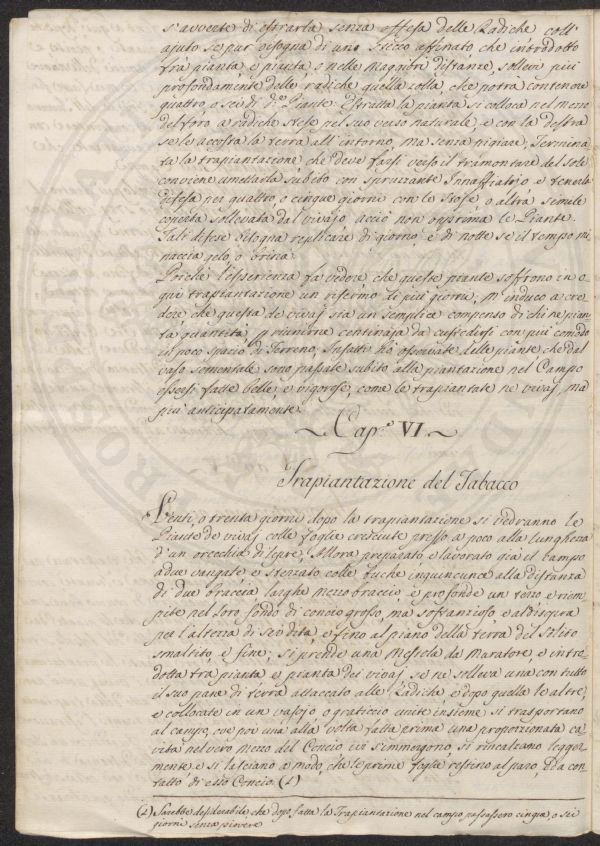 s'avverte di estrarla senza offesa delle Radiche coll'
ajuto se pur bisogna di uno Stecco affinato che introdotto
frà pianta, e pianta o nelle maggiori distanze, sollevi più
profondamente delle radiche quella zolla, che potrà contenere
quattro, o sei di d.e Piante. Estratta la pianta si colloca nel mezzo
del foro a radiche stese nel suo verso naturale, e con la destra
se le accosta la terra all'intorno, ma senza pigiare. Termina
ta la trapiantazione che deve farsi verso il tramontare del Sole
conviene umettarla subito con spruzzante Innaffiatojo e tenerla
difesa per quattro, o cinque giorni con le Stoje o altra simile
coperta sollevata dal vivajo acciò non opprima le Piante.
Tali difese bisogna replicare di giorno, e di notte se il tempo mi
naccia gelo, o brina.
Perchè l'esperienza fà vedere che queste piante soffrono in o
gni trapiantazione un rifermo di più giorni, m'induco a cre
dere che questa de vivaj sia un semplice compenso di chi ne pian
ta quantità, p riunirne centinaja da custodirsi con più comodo
in poco spazio di Terreno; Infatti hò osservate delle piante che dal
vaso sementale sono passate subito alla piantazione nel Campo
essersi fatte belle, e vigorose, come le trapiantate ne vivaj, ma
più anticipatamente.
Cap.o VI.
Trapiantazione del Tabacco
Venti, o trenta giorni dopo la trapiantazione si vedranno le
Piante de vivaj colle foglie cresciute presso a poco alla lunghezza
d'un orecchia di lepre, Allora preparato, e lavorato già il Campo
a due vangate e sterzato colle buche inquincunce alla distanza
di due braccia larghe mezzo braccio, e profonde un terzo e riem
pite nel loro fondo di concio grosso, ma sostanzioso e al disopra
per l'altezza di Sei dita, e fino al piano della terra del solito
smaltito, e fine; si prende una Mestola da Muratore, e intro
dotta tra pianta e pianta dei vivaj se ne solleva una con tutto
il suo pane di terra attaccato alle Radiche e dopo quella le altre,
e collocate in un vassojo o graticcio unite insieme si trasportano
al campo, ove poi una alla volta fatta prima una proporzionata ca
vità nel vero mezzo del Concio ivi s'immergono, si rincalzano legger
mente, e si lasciano a modo, che le prime foglie restino al paro, ed a con
tatto di esso Concio. (1)
(1) Sarebbe desiderabile che dopo fatta la Trapiantazione nel campo passassero cinque, o sei
giorni senza piovere